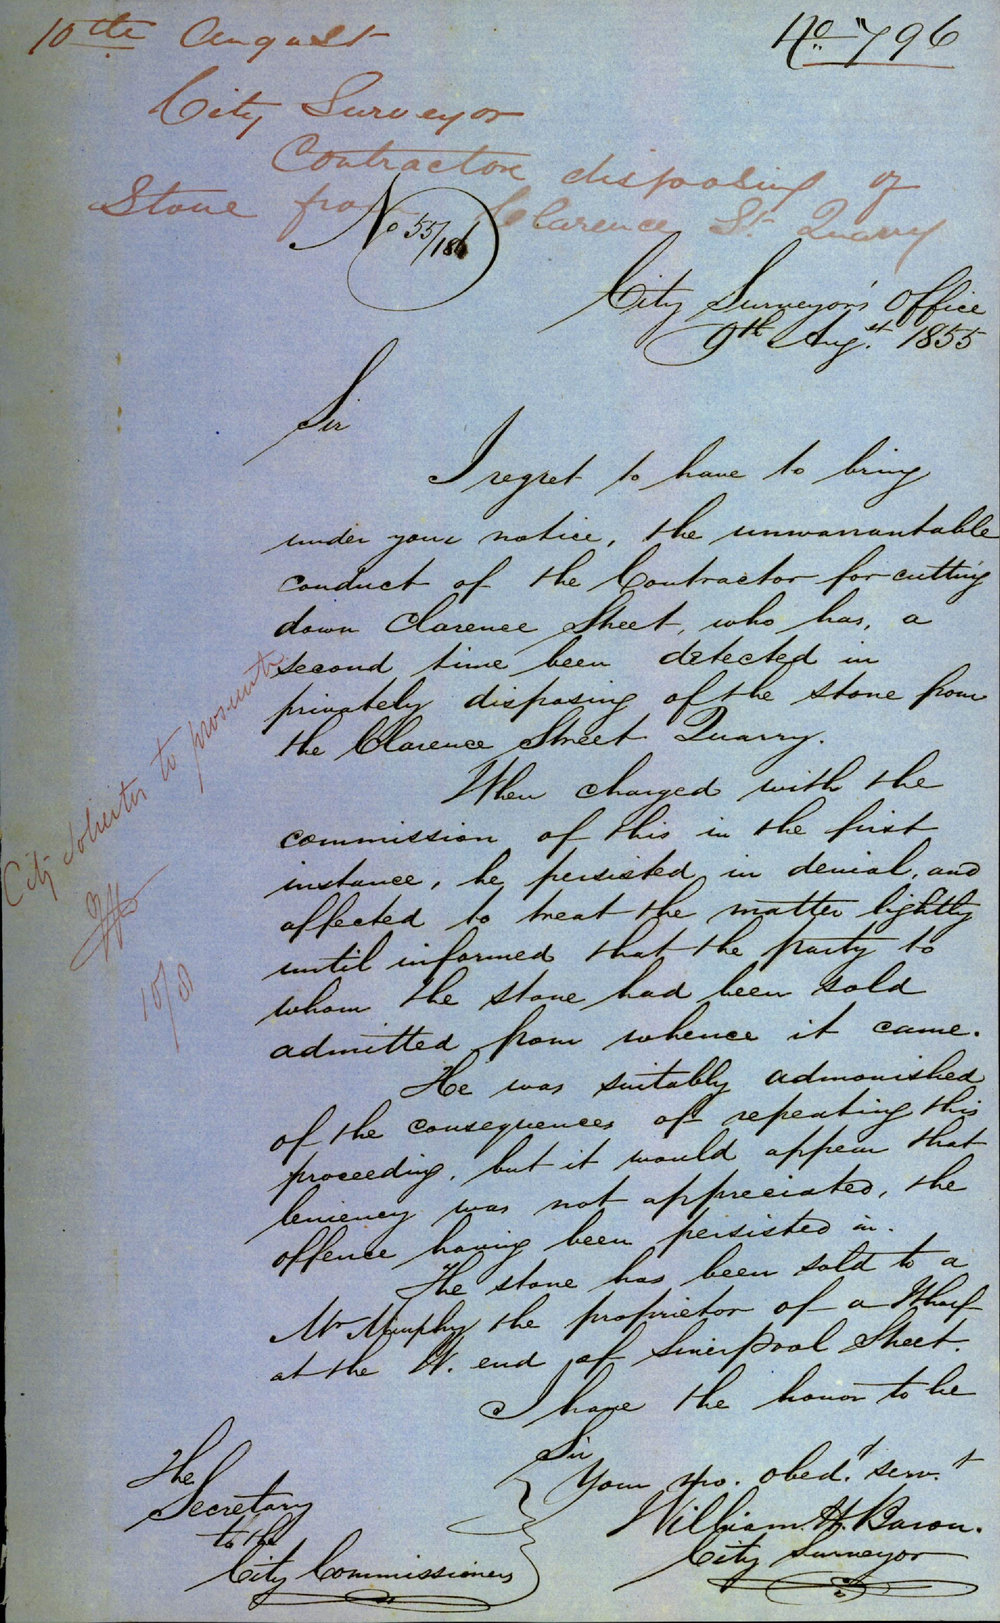 10th August
No 796
City Surveyor
Contractor disposing of
Stone from Clarence St. Quarry
No 55/186
City Surveyor's Office
9th Augst 1855
Sir
I regret to have to bring
under your notice, the unwarrantable
conduct of the Contractor for cutting
down Clarence Street, who has, a
second time been detected in
privately disposing of the stone from
the Clarence Street Quarry.
When charged with the
commission of this in the first
instance, he persisted in denial, and
affected to treat the matter lightly
until informed that the party to
whom the stone had been sold
admitted from whence it came.
He was suitably admonished
of the consequences of repeating this
proceeding, but it would appear that
leniency was not appreciated, the
offence having been persisted in.
The stone has been sold to a
Mr Murphy the proprietor of a Wharf
at the W. end of Liverpool Street.
I have the honor to be
Sir
Your mo. obedt. servt
William H. Baron.
City Surveyor
The
Secretary
to the
City Commissioners
City Solicitor to prosecute
10/8